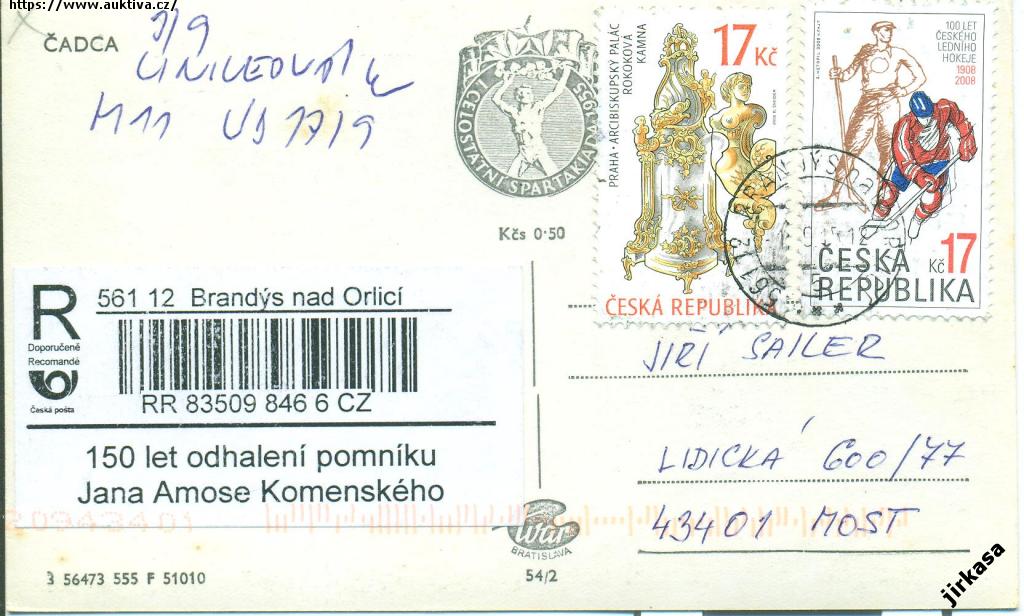 https://www.auktiva.cz/
ČADCA
I. CELOSTÁTNÍ SPARTAKIÁDA 1955
Kčs 0·50
17 Kč
PRAHA · ARCIBISKUPSKÝ PALÁC
ROKOKOVÁ
KAMNA
ČESKÁ REPUBLIKA
100 LET
ČESKÉHO
LEDNÍHO
HOKEJE
1908
2008
Kč 17
ČESKÁ
REPUBLIKA
561 12
R
Doporučeně
Recomandé
Česká pošta
561 12 Brandýs nad Orlicí
RR 83509 846 6 CZ
150 let odhalení pomníku
Jana Amose Komenského
JIŘÍ SAILER
LIDICKÁ 600/77
43401 MOST
BRATISLAVA
3 56473 555 F 51010
54/2
jirkasa